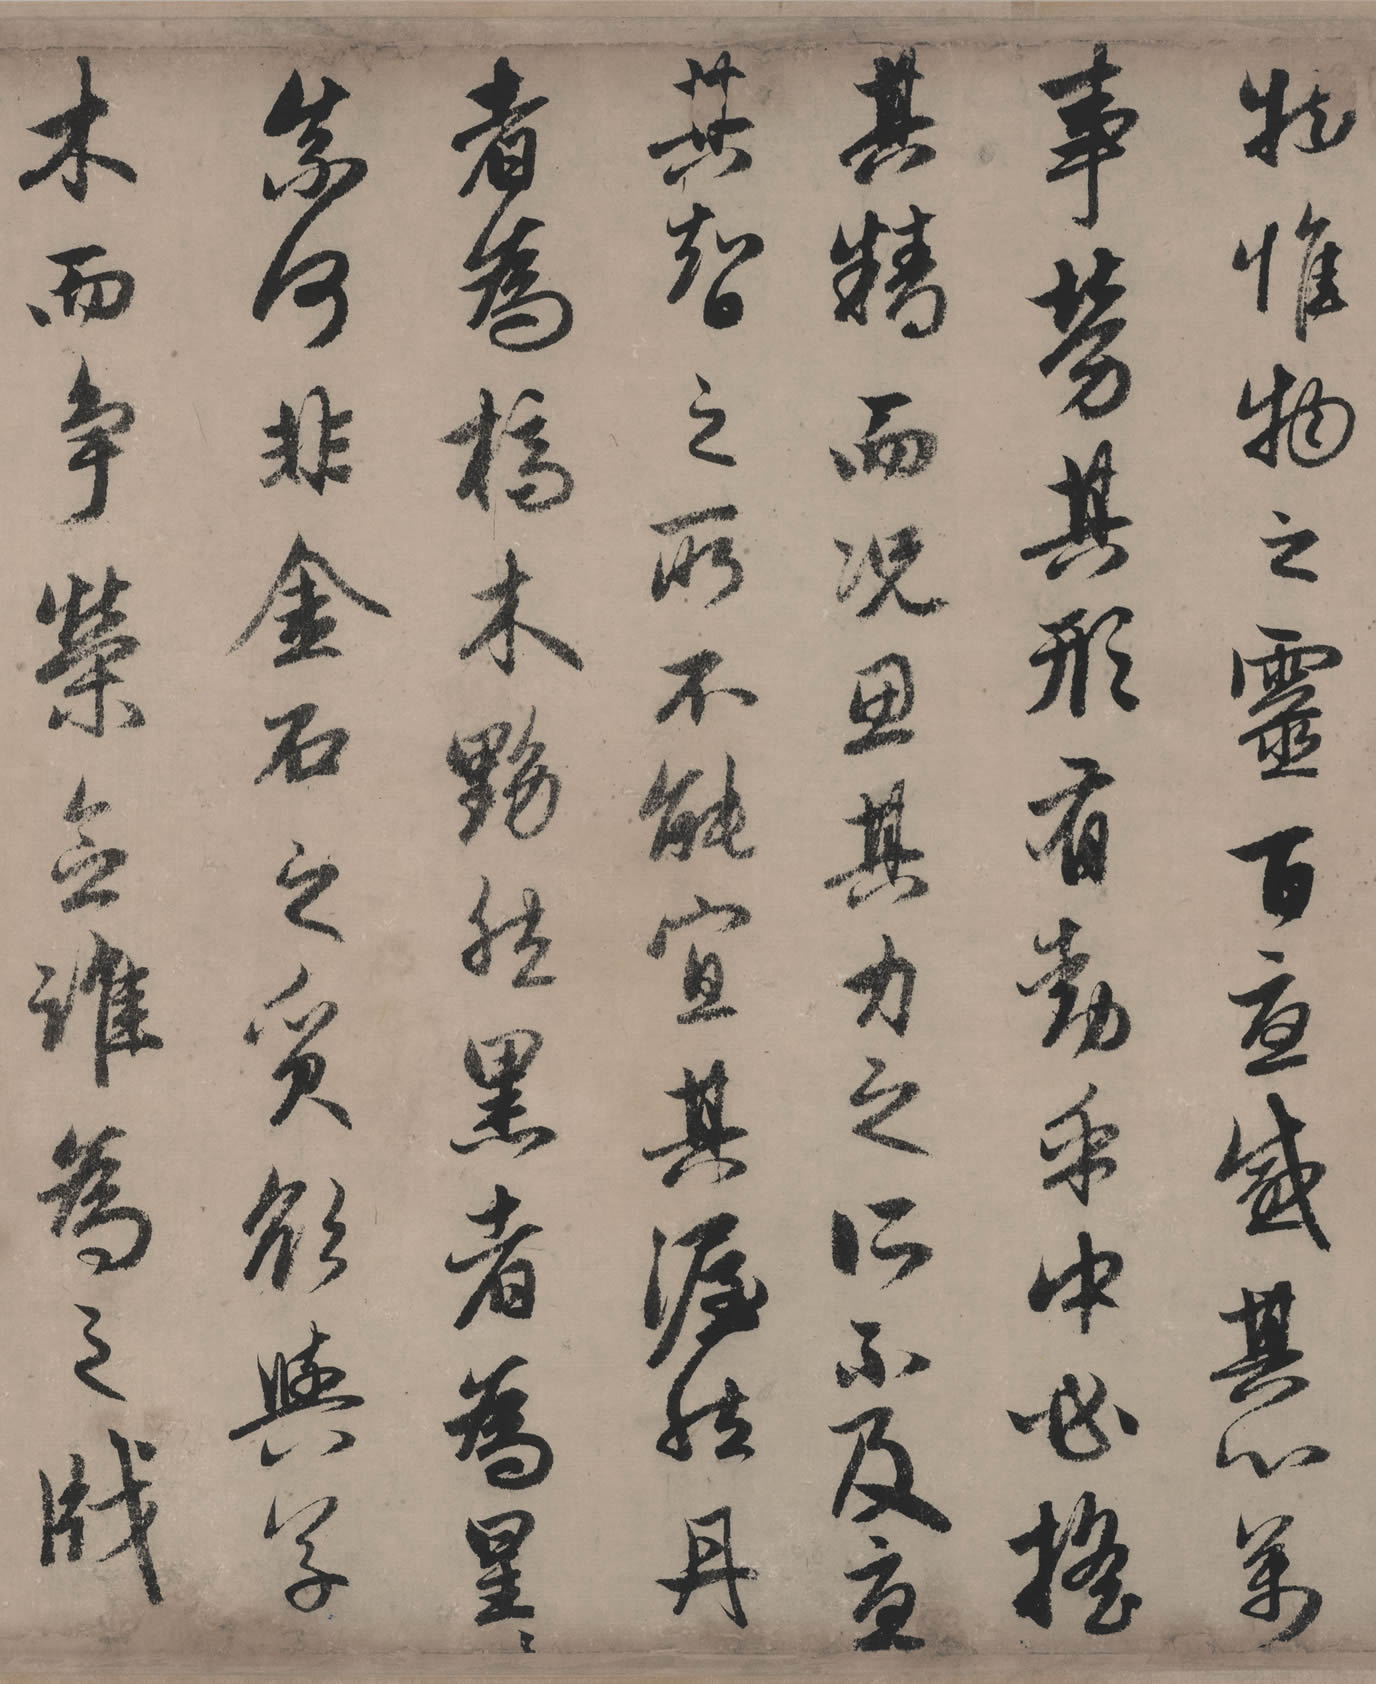 物惟物之靈百憂感其心萬
事勞其形有動乎中必搖
其精而況思其力之所不及憂
其智之所不能宜其渥然丹
者為槁木黟然黑者為星〻
奈何非金石之質欲與草
木而爭榮念誰為之戕